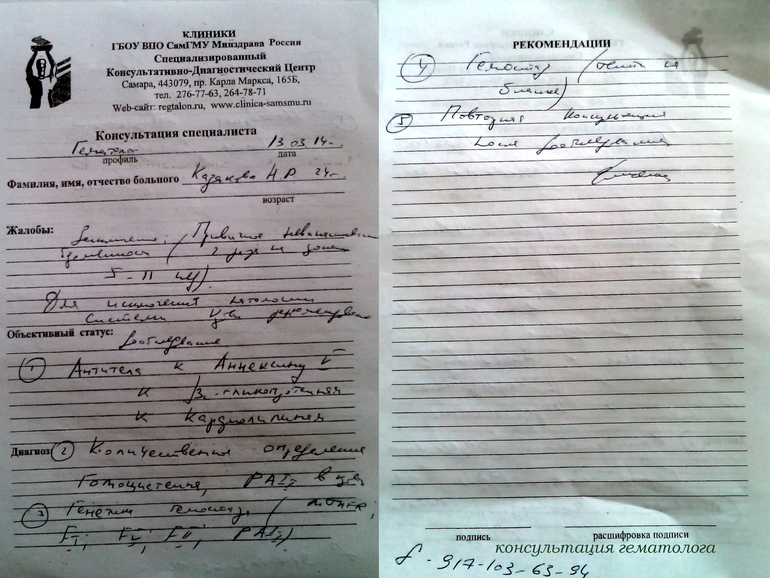 КЛИНИКИ
ГБОУ ВПО СамГМУ Минздрава России
Специализированный
Консультативно-Диагностический Центр
Самара, 443079, пр. Карла Маркса, 165Б,
тел. 276-77-63, 264-78-71
Web-сайт: regtalon.ru, www.clinica-samsmu.ru
Консультация специалиста
Гематолог 13 03 14г.
профиль дата
Фамилия, имя, отчество больного Казакова Н Р 24г.
возраст
Жалобы: Привычная невынашивание
беременности
5-11 нед)
Для исключения патологии
системы
Объективный статус:
дообследование
1 Антитела к Аннексину V
к β2-гликопротеинам
к Кардиолипинам
Диагноз: 2 Количественное определение
Гомоцистеина, PAI в
3 Генетика Гемостаза
PAI)
РЕКОМЕНДАЦИИ
4 Гемостаз
бланке)
5 Повторная консультация
после дообследования
подпись расшифровка подписи
консультация гематолога
8-917-103-63-94